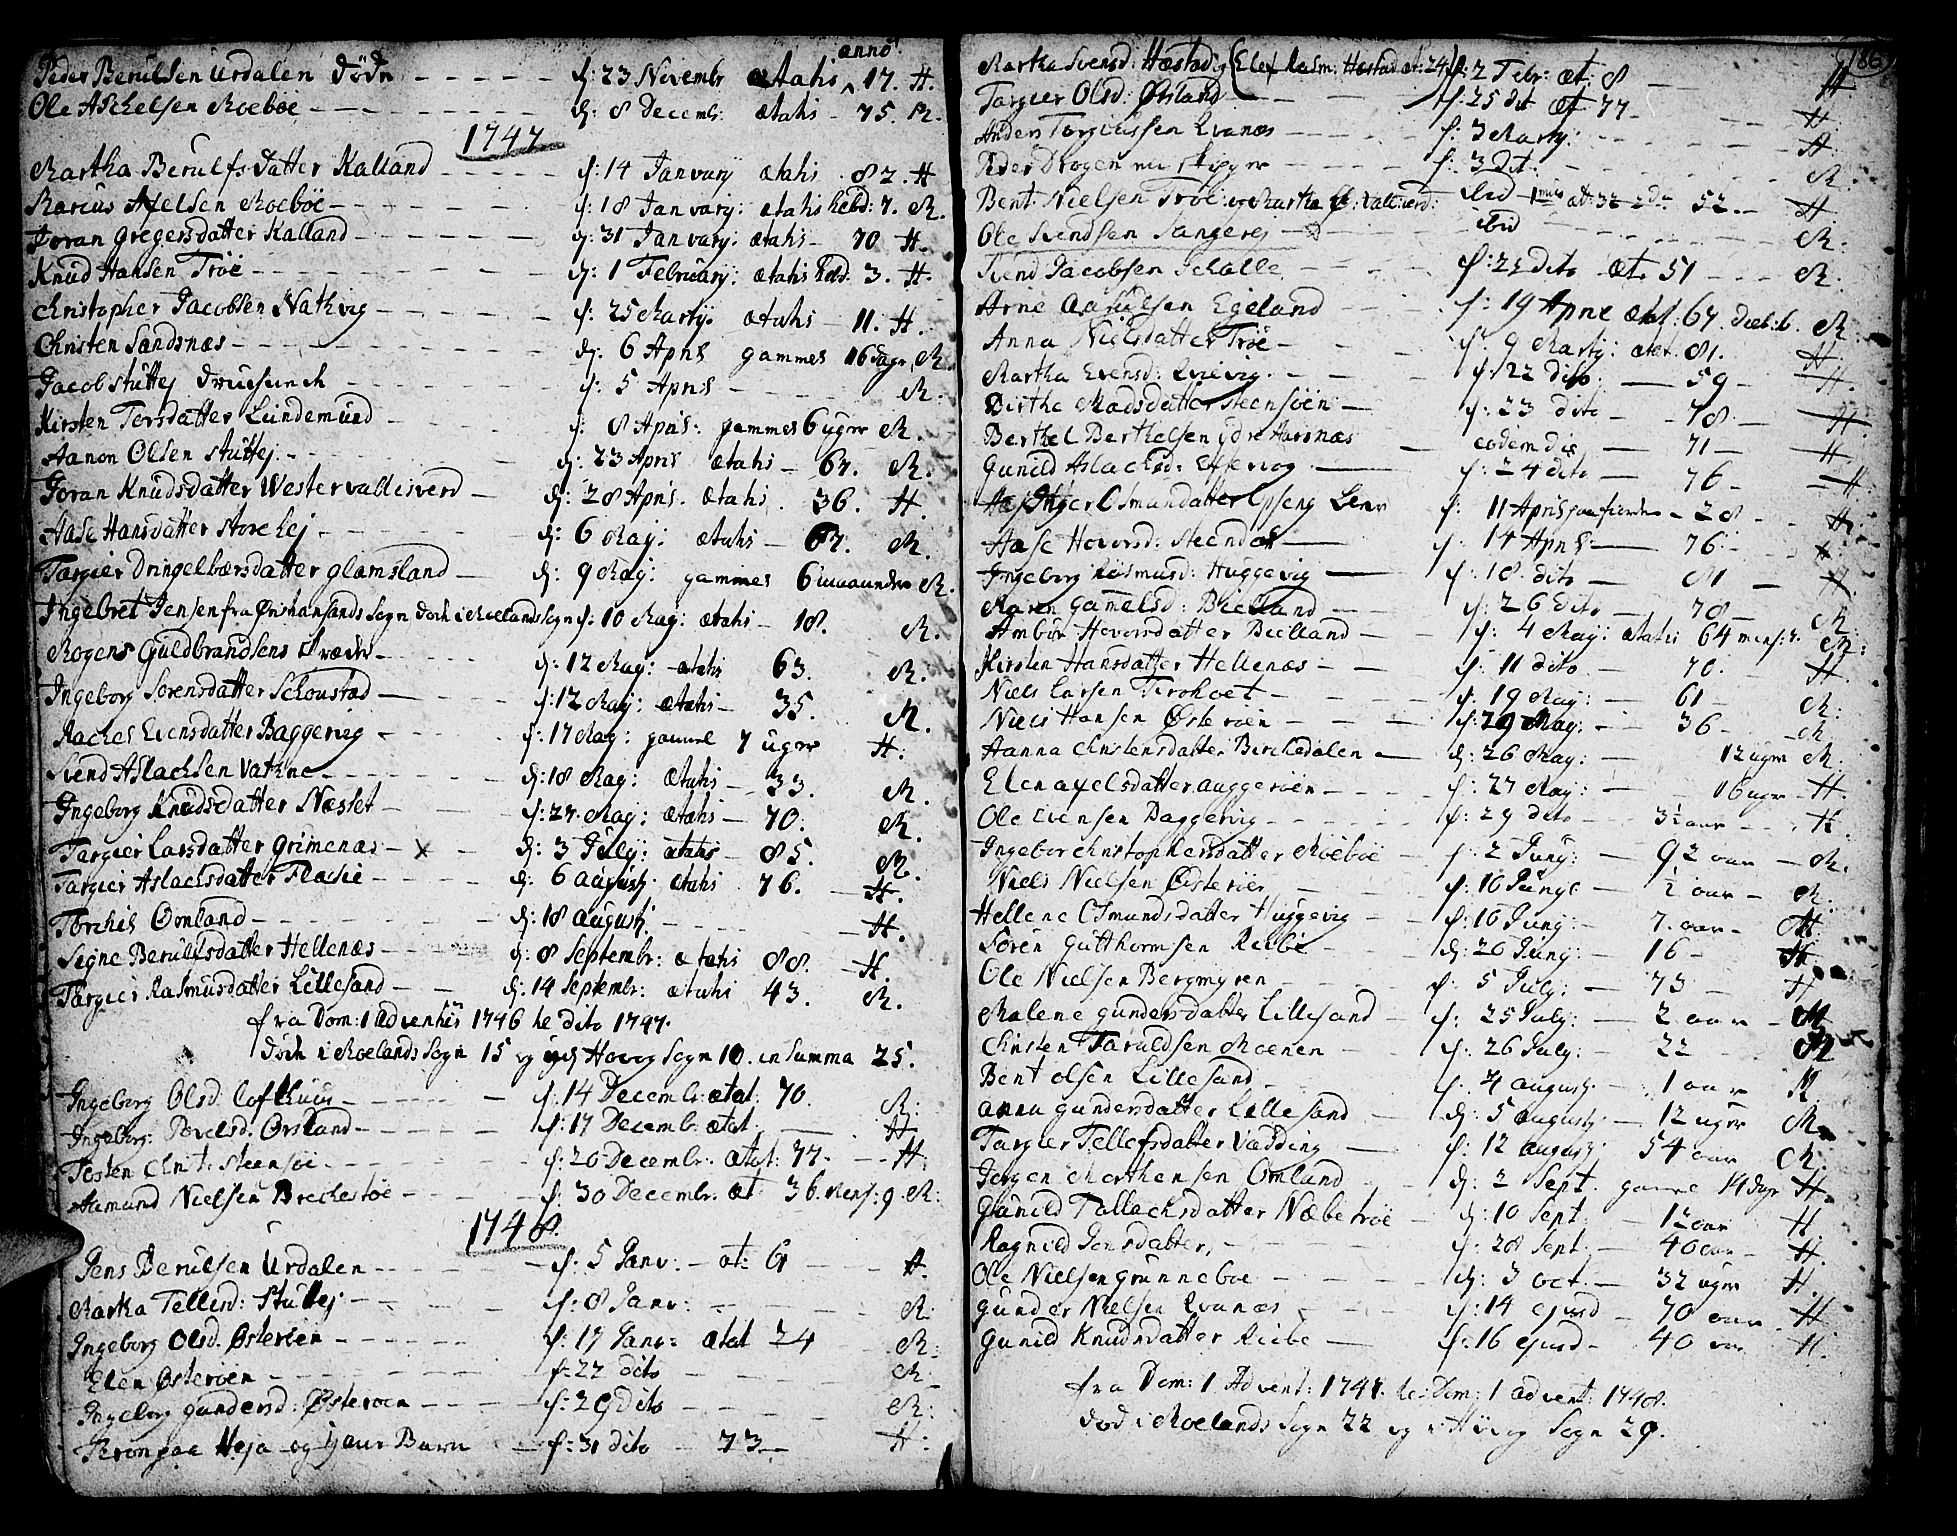 anno
Peder Berulsen Urdalen død - - - - - d: 23 Novembr ætatis 17. H.
Ole Aschelsen Moeboe - - - - - d: 8 Decembr: ætatis - 75. M.
1747
Martha Berulfsdatter Kalland - - - - - d: 14 January ætatis 82. H
Marcus Axelsen Moeboe - - - - - d: 18 January: ætatis hebd: 7. M.
Joran Gregersdatter Kalland - - - - - d: 31 January: ætatis - 70 H.
Knud Hansen Trøe - - - - - d: 1 February: ætatis hebd: 3. H.
Christopher Jacobsen Nathvig - - - - - d: 25 Marty: ætatis - 11. H.
Christen Sandsnæs - - - - - d: 6 April gammel 16 dage, M.
Jacob Stuttej - - - - - d: 5 April - - - M.
Kirsten Torsdatter Lundemund - - - - - d: 8 April: gammel 6 uger M.
Aanon Olsen Stuttej - - - - - d: 23 April ætatis - 67. M.
Joran Knudsdatter Westervallesverd - d: 28 April. ætatis. 36. H.
Aase Hansdatter Storelej - - - - - d: 6 May: ætatis - 67. M.
Targier Dringelbærsdatter Glamsland - d: 9 May: gammel 6 maaneder M.
Ingebret Jensen fra Christiansands Sogn død i Moelands Sogn d: 10 May: ætatis - 18. M.
Mogens Guldbrandsens - - - - d: 12 May: ætatis 63. M.
Ingeborg Sorensdatter Schoustad - - - d: 12 May: ætatis - 35. M.
Rachel Evensdatter Baggevig - - - - d: 17 May: gammel 7 uger H.
Svend Aslachsen Vatne - - - - - d: 18 May: ætatis - 33. M.
Ingeborg Knudsdatter Næstet - - - - d: 27 May: ætatis - 70. M.
Targier Larsdatter Grimenæs - x - d: 3 July: ætatis - 85. M.
Targier Aslachsdatter Flachie - - - - d: 6 august: ætatis 76. H.
Torchil Omland - - - - - d: 18 august: - - - H.
Segne Berulfsdatter Hellenæs - - - - d: 8 Septembr: ætatis 88. - H.
Targier Rasmusdatter Lillesand - - - d: 14 Septembr: ætatis 43. M.
fra Dom: 1 Adventus 1746 te dito 1747.
død i Moelands Sogn 15 og udj Høvog Sogn 10. in Summa 25.
Ingeborg Olsd: - - - - - d: 14 Decembr: ætat: 70. M:
Ingeborg: Povelsd: Ørsland - - - - - d: 17 Decembr: ætat. - - H
Tosten Christ: Steensøe - - - - - d: 20 Decembr: ætat: 77. - - H.
Aamund Nielsen Brechestøe - - - - - d: 30 Decembr. æt. 36. Mens: 9 M:
1748.
Jens Berulsen Urdalen - - - - - d: 5 Janv: - æt: 61 - - H.
Marta Tellesd: Stuttej - - - - - d: 8 Janv: - - - M:
Ingeborg Olsd. Østerøen - - - - - d: 17 Janv: ætat 24 M:
Elen Østerøen - - - - - d: 22 dito - - - M:
Ingeborg Gundersd: Østerøen - - - - d: 29 dito - - - M:
- og - Barn - d: 31 dito - 73 - H:
186
Martha Svensd: Hæstad og (Elef Rasm: Hæstad æt: 24) d: 2 Febr: æt: 8 - - H
Targier Olsd: Ørsland - - - d: 25 dit æt 77 - - - H.
Anders Torgiussen Qvanæs - - - - d: 3 Marty: - - - H.
Peder Drogen - - - - d: 3 dit: - - - M.
Bent Nielsen Trøe: og Martha vallesverd: ibid 1mus æt: 32 2dus 52 - H.
Ole Svendsen Sangerej - - ibid - - - M.
Svend Jacobsen Schalle - - - - d: 21 dito æt. 51 - - M.
Arne Aasulsen Egeland - - - - d: 19 Aprie ætat: 67. dieb: 6. M.
Anna Nielsdatter Trøe - - - - d: 9 Marty: ætat. 81. H.
Martha Evensd: Qvievig. - - - - d: 22 dito: - 59 - H.
Birthe Madsdatter Steensøen - d: 23 dito - 78 - H.
Berthel Berthelsen ydre Aarsnæs - eodem die - 71 - H
Gunild Aslachsd: - d: 24 dito - 76 - H.
Inger Osmundatter - d: 11 April - 28 - H.
Aase Hoversd: Steendal - d: 14 April - 76 - H.
Ingeborg Rasmusd: Huggevig - d: 18. dito - 81 - H.
Maren Gamelsd: Bielland - - d: 26 dito - 78 - M.
Ambior Hoversdatter Bielland - - d: 4 May: ætatis 64 mens: M:
Kirsten Hansdatter Hellenæs - - d: 11 dito - 70. H.
Niels Larsen - - - d: 19 May: - 61 - M:
Niels Hansen Østerøen - - - d: 29 May: - 36 - M:
Hanna Christensdatter Birchedalen - d: 26 May: - 12 uger M.
Elen Axelsdatter Auggerøen - - - d: 27 May: - 16 uger - H.
Ole Evensen Baggevig - - - - d: 29 dito - 3½ aar - - H.
Ingebor Christophersdatter Moeboe - d: 2 Juny: - 92 aar - M.
Niels Nielsen Østerøen - - - d: 10 Junge - ½ aar - M.
Hellene Osmundsdatter Huggevig - - d: 10 Juny: - 7. aar - H
Soren Gutthormsen Reibe - - d: 20 Juny: - 16 - H
Ole Nielsen Bergmyren - - - d: 5 July: - 73 - H
Malene Gundersdatter Lillesand - - d: 25 July: - 2 aar - M
Christen Taruldsen Moenen - - d: 26 July: - 22 M
Bent Olsen Lillesand - - - d: 4 august: - 1 aar M.
Anna Gundersdatter Lillesand - d: 5 august: - 12 uger M.
Targier Tellefsdatter Vædding - d: 12 august: 54 aar M.
Jørgen Morthensen Omland - - d: 2 Sept. gamle 14 dage H.
Gunild Tallachsdatter Næbetrøe - d: 10 Sept: - 12 aar H
Ragnild Jensdatter, - - - - d: 28 Sept: - 40 aar - H.
Ole Nielsen Grunneboe - - - d: 3 oct. - 32 uger H.
Gunder Nielsen Qvanæs - - - d: 14 ejusd - 70 aar - H
Gunild Knudsdatter Reibe - d: 16 ejusd - 40 aar H.
fra Dom: 1 Advent: 1747. te Dom: 1 advent: 1748.
død i Moelands Sogn 22 og i Høvog Sogn 29.